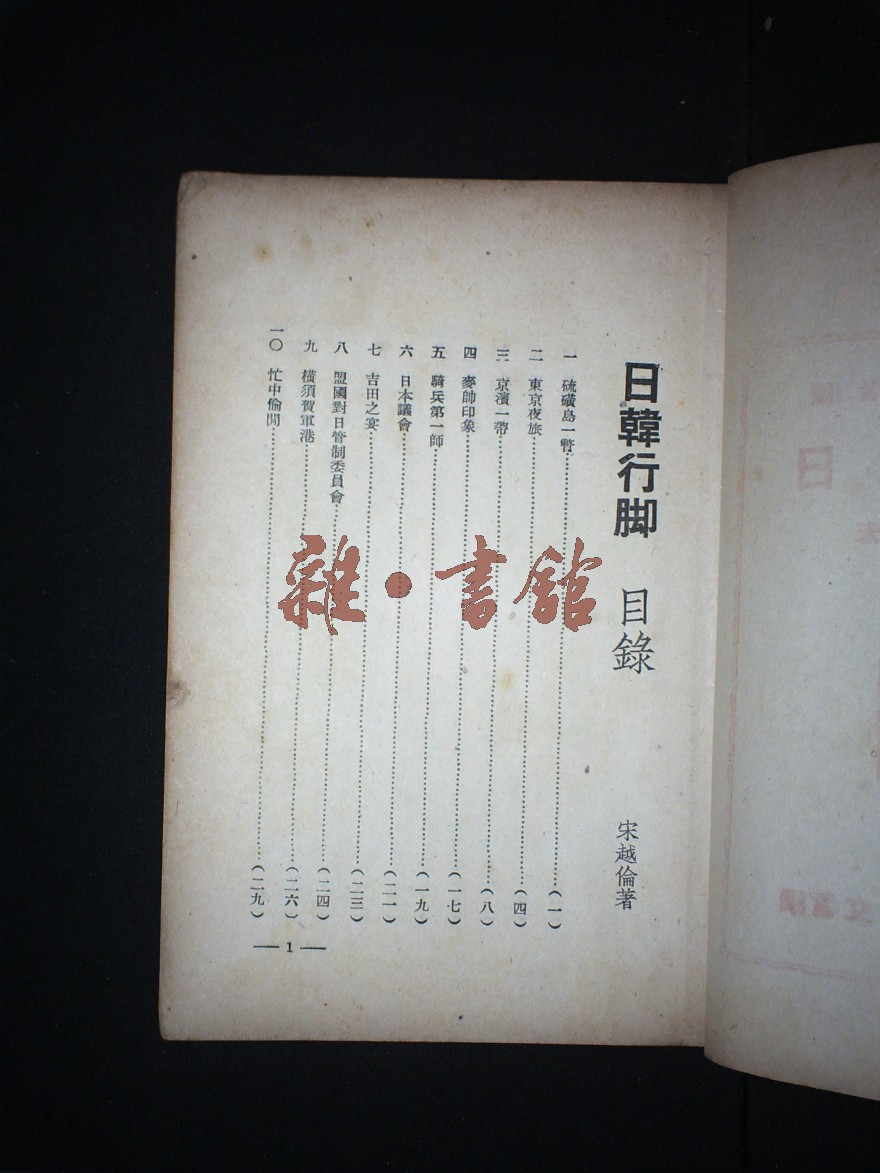 日韓行脚 目錄 宋越倫著
一 硫磺島一瞥……(一)
二 東京夜旅……(四)
三 京濱一帶……(八)
四 麥帥印象……(一七)
五 騎兵第一師……(一九)
六 日本議會……(二一)
七 吉田之宴……(二三)
八 盟國對日管制委員會……(二四)
九 橫須賀軍港……(二六)
一〇 忙中偷閒……(二九)
— 1 —
雜·書館